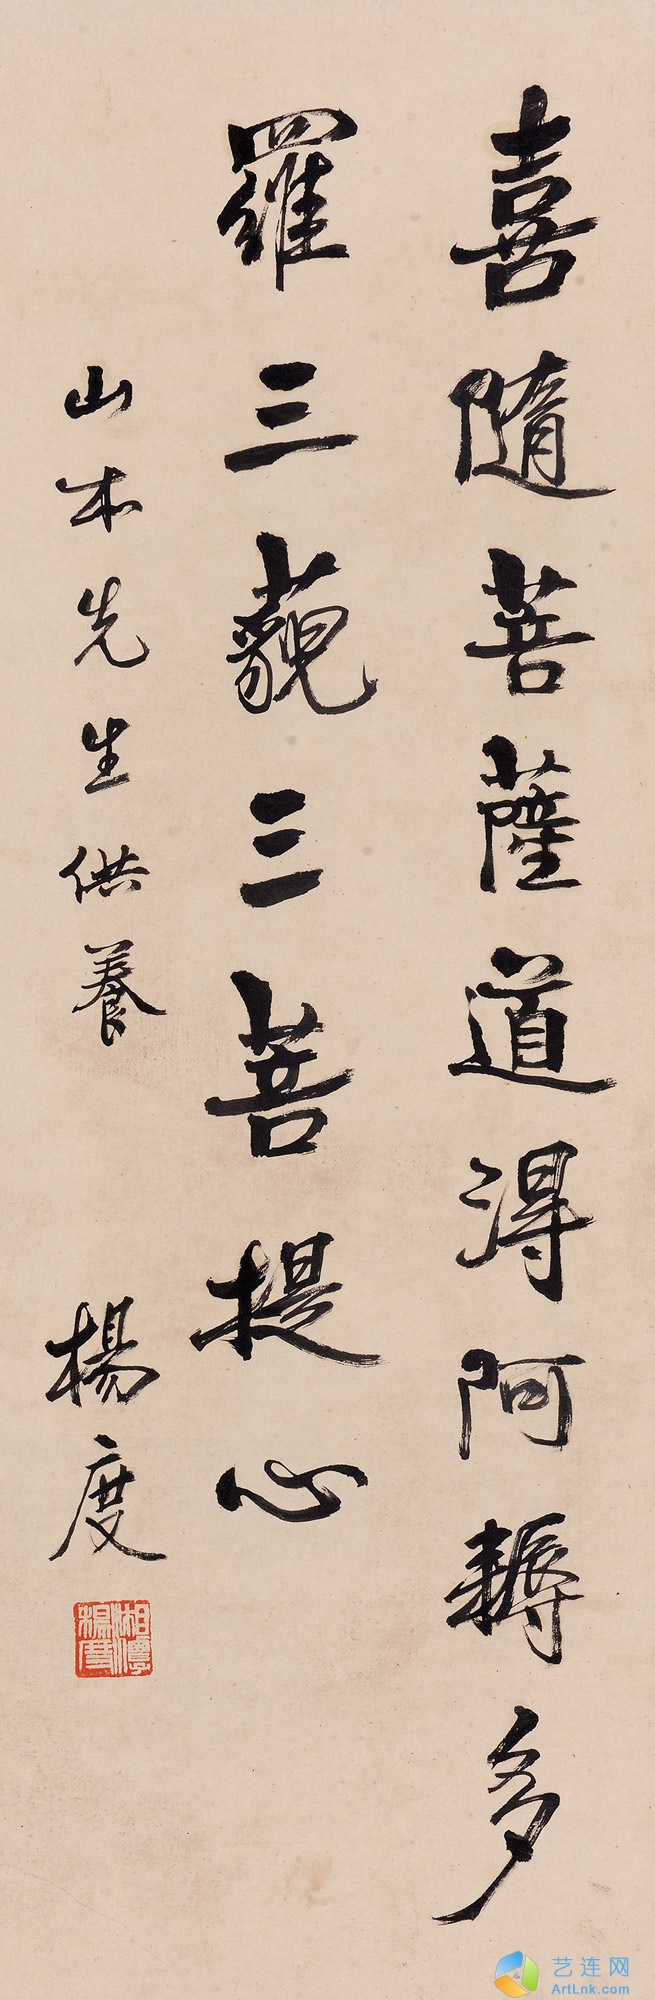 喜隨菩薩道得阿耨多
羅三藐三菩提心
山本先生供養
楊度
湘潭
楊度
艺连网
ArtLnk.com